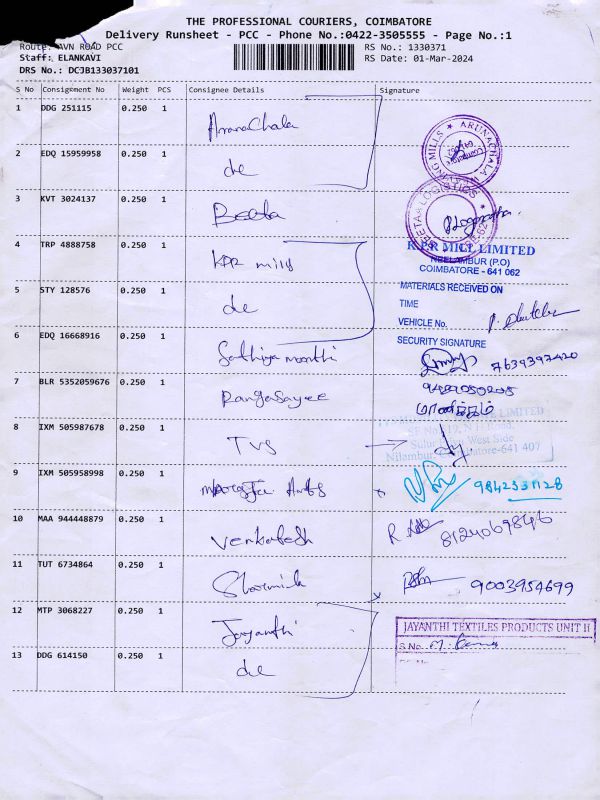 THE PROFESSIONAL COURIERS, COIMBATORE
Delivery Runsheet - PCC - Phone No.:0422-3505555 - Page No.:1
Route: AVN ROAD PCC RS No.: 1330371
Staff: ELANKAVI RS Date: 01-Mar-2024
DRS No.: DCJB133037101
S No Consignment No Weight PCS Consignee Details Signature
1 DDG 251115 0.250 1 Arunachala
2 EDQ 15959958 0.250 1 do
ARUNACHALA
MILLS
3 KVT 3024137 0.250 1 Beeta
BEETA LOGISTICS
4 TRP 4888758 0.250 1 KPR mills
K.P.R MILL LIMITED
NEELAMBUR (P.O)
COIMBATORE - 641 062
5 STY 128576 0.250 1 do
MATERIALS RECEIVED ON
TIME
VEHICLE No.
6 EDQ 16668916 0.250 1 Sathiya moorthi
SECURITY SIGNATURE
7639397420
7 BLR 5352059676 0.250 1 RangaSayee
8 IXM 505987678 0.250 1 TVS
LIMITED
West Side
Nilambur, Coimbatore-641 407
9 IXM 505958998 0.250 1
9842331128
10 MAA 944448879 0.250 1 Venkatesh
8124069846
11 TUT 6734864 0.250 1 Sharmila
9003954699
12 MTP 3068227 0.250 1 Jayanthi
JAYANTHI TEXTILES PRODUCTS UNIT II
S.No
13 DDG 614150 0.250 1 do